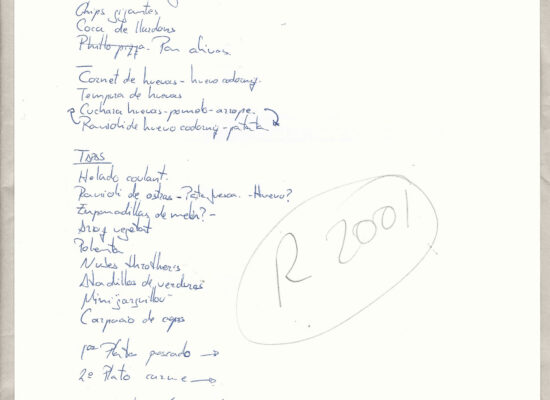 Chips gigantes
Coca de llardons
Phillo pizza. Pan olivas
Cornet de huevas - huevo codorniz.
Tempura de huevas
Cuchara huevas - pomelo - arrope.
Ravioli de huevo codorniz - patata
TAPAS
Helado coulant.
Ravioli de ostras - - Huevo?
Empanadillas de melón? -
Arroz vegetal
Polenta
Nubes
de verduras
Mini
Carpaccio de
1er Plato pescado →
2º Plato carne →
R 2001